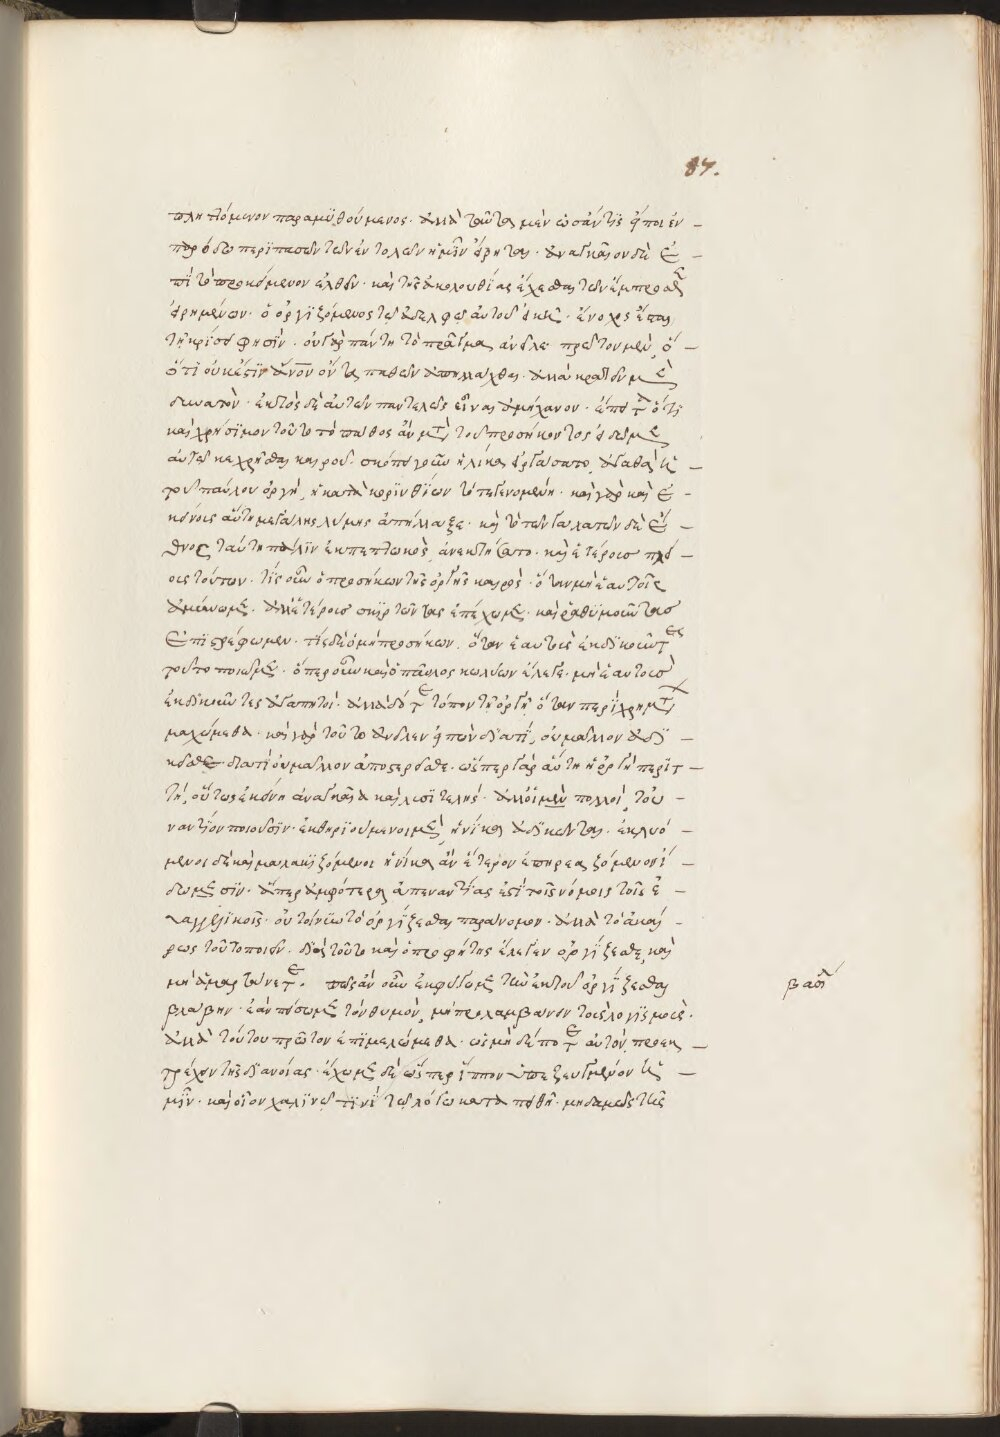 87.
πληττόμενον παραμυθούμενος· ἀλλὰ ταῦτα μὲν ὡσάν τις εἴποι ἐν
παρόδω περὶ πασῶν τῶν ἐντολῶν ἡμῖν εἴρηται· ἀναγκαῖον δὲ ἐ
πὶ τὸ προκείμενον ἐλθεῖν· καὶ τῆς ἀκολουθίας ἔχεσθαι τῶν ἔμπροσθεν
εἰρημένων· ὁ ὀργϊζόμενος τῶ ἀδελφῶ αὐτοῦ εἰκῆ· ἔνοχος ἔσται
τῆ κρίσει φησὶν· οὐ γὰρ πάντη τὸ πρᾶγμα ἀνεῖλε· πρῶτον μὲν, ὁ
ὅτι οὐκ ἔστϊν ἄνον ὄντα παθῶν ἀπηλλάχθαι· ἀλλὰ κρατεῖν μὲν
δυνατὸν· ἐκτὸς δὲ αὐτῶν παντελῶς εἶναι ἀμήχανον· ἔπειτα ὅτι
καὶ χρήσϊμον τοῦτο τὸ πάθος ἂν μετὰ τοῦ προσήκοντος εἰδῶμεν
αὐτῶ κεχρῆσθαι καιροῦ· σκόπει γοῦν ἡλίκα εἰργάσατο, ἀγαθὰ ἡ
τοῦ παύλου ὀργὴ, ἡ κατὰ κορϊνθΐων τότε γενομένη· καὶ γὰρ καὶ ἐ
κείνοις αὕτη μεγάλης λύμης ἀπήλλαξε· καὶ τὸ τῶν γαλατῶν δὲ ἔ
θνος ταύτη πάλϊν ἐκπεπτωκὸς ἀνεκτήσατο· καὶ ἑτέροισ πλεί
οις τούτων· τίς οὖν ὁ προσήκων τῆς ὀργῆς καιρὸς· ὅταν μὴ ἑαυτοῖς
ἀμύνωμεν· ἀλλ' ἑτέροισ σκϊρτῶντας ἐπέχωμεν· καὶ ῥαθϋμοῦντασ
ἐπιστρέφωμεν· τίς δὲ ὁ μὴ προσήκων· ὅταν ἑαυτοὺς ἐκδϊκοῦντες
τοῦτο ποιῶμεν· ὅπερ οὖν καὶ ὁ παῦλος κωλύων ἔλεγε· μὴ ἑαυτοὺσ
ἐκδϊκοῦντες ἀγαπητοὶ· ἀλλὰ δότε τόπον τῆ ὀργῆ· ὅταν περὶ χρημάτων
μαχώμεθα· καὶ γὰρ τοῦτο ἀνεῖλεν εἰπὼν δϊατί, οὐ μᾶλλον ἀδϊ
κεῖσθε· διατί οὐ μᾶλλον ἀποστερεῖσθε· ὥσπερ γὰρ αὕτη ἡ ὀργὴ περϊτ
τὴ, οὕτως ἐκείνη ἀναγκαία καὶ λυσϊτελὴς· ἀλλ' οἱ μὲν πολλοὶ, τοὐ
ναντΐον ποιοῦσϊν· ἐκθηρϊούμενοι μὲν, ἡνίκα ἀδϊκῶνται· ἐκλυό
μενοι δὲ καὶ μαλακϊζόμενοι ἡνίκα ἂν ἕτερον ἐπηρεαζόμενον ἴ
δωσιν· ἅπερ ἀμφότερα ἀπεναντΐας ἐστὶ τοῖς νόμοις τοῖς εὐ
αγγελϊκοῖς· οὐ τοίνυν τὸ ὀργΐζεσθαι παράνομον· ἀλλὰ τὸ ἀκαί
ρως τοῦτο ποιεῖν· δϊὰ τοῦτο καὶ ὁ προφήτης ἔλεγεν ὀργΐζεσθε, καὶ
μὴ ἁμαρτάνετε· πῶς ἂν οὖν ἐκφύγωμεν τὴν ἐκ τοῦ ὀργΐζεσθαι
βλάβην· ἐὰν πείσωμεν τὸν θυμὸν, μὴ προλαμβάνειν τοὺς λογϊσμοὺς·
ἀλλὰ τούτου πρῶτον ἐπϊμελώμεθα· ὡς μὴδέποτε αὐτὸν προεκ
τρέχειν τῆς δϊανοίας· ἔχωμεν δὲ ὥσπερ ἵππον ὑπεζευγμένον ἡ
μῖν· καὶ οἷον χαλϊνῶ τϊνὶ τῶ λόγω καταπειθῆ· μηδαμῶς τῆς
βασι